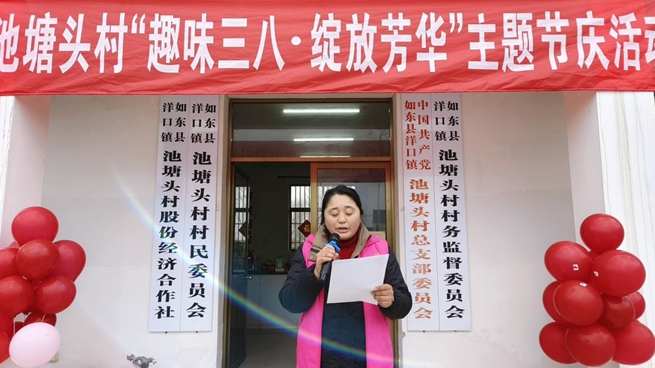 池塘头村“趣味三八·绽放芳华”主题节庆活动
如东县
洋口镇
池塘头村股份经济合作社
如东县
洋口镇
池塘头村村民委员会
中国共产党
如东县洋口镇
池塘头村总支部委员会
如东县
洋口镇
池塘头村村务监督委员会